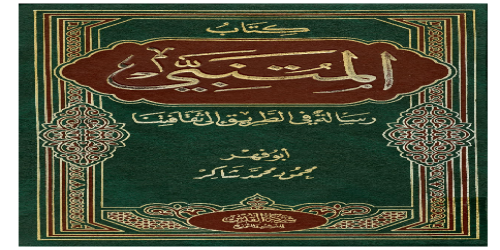 كتاب
المتنبي
رسالة في الطريق إلى ثقافتنا
أبو فهر
محمود محمد شاكر